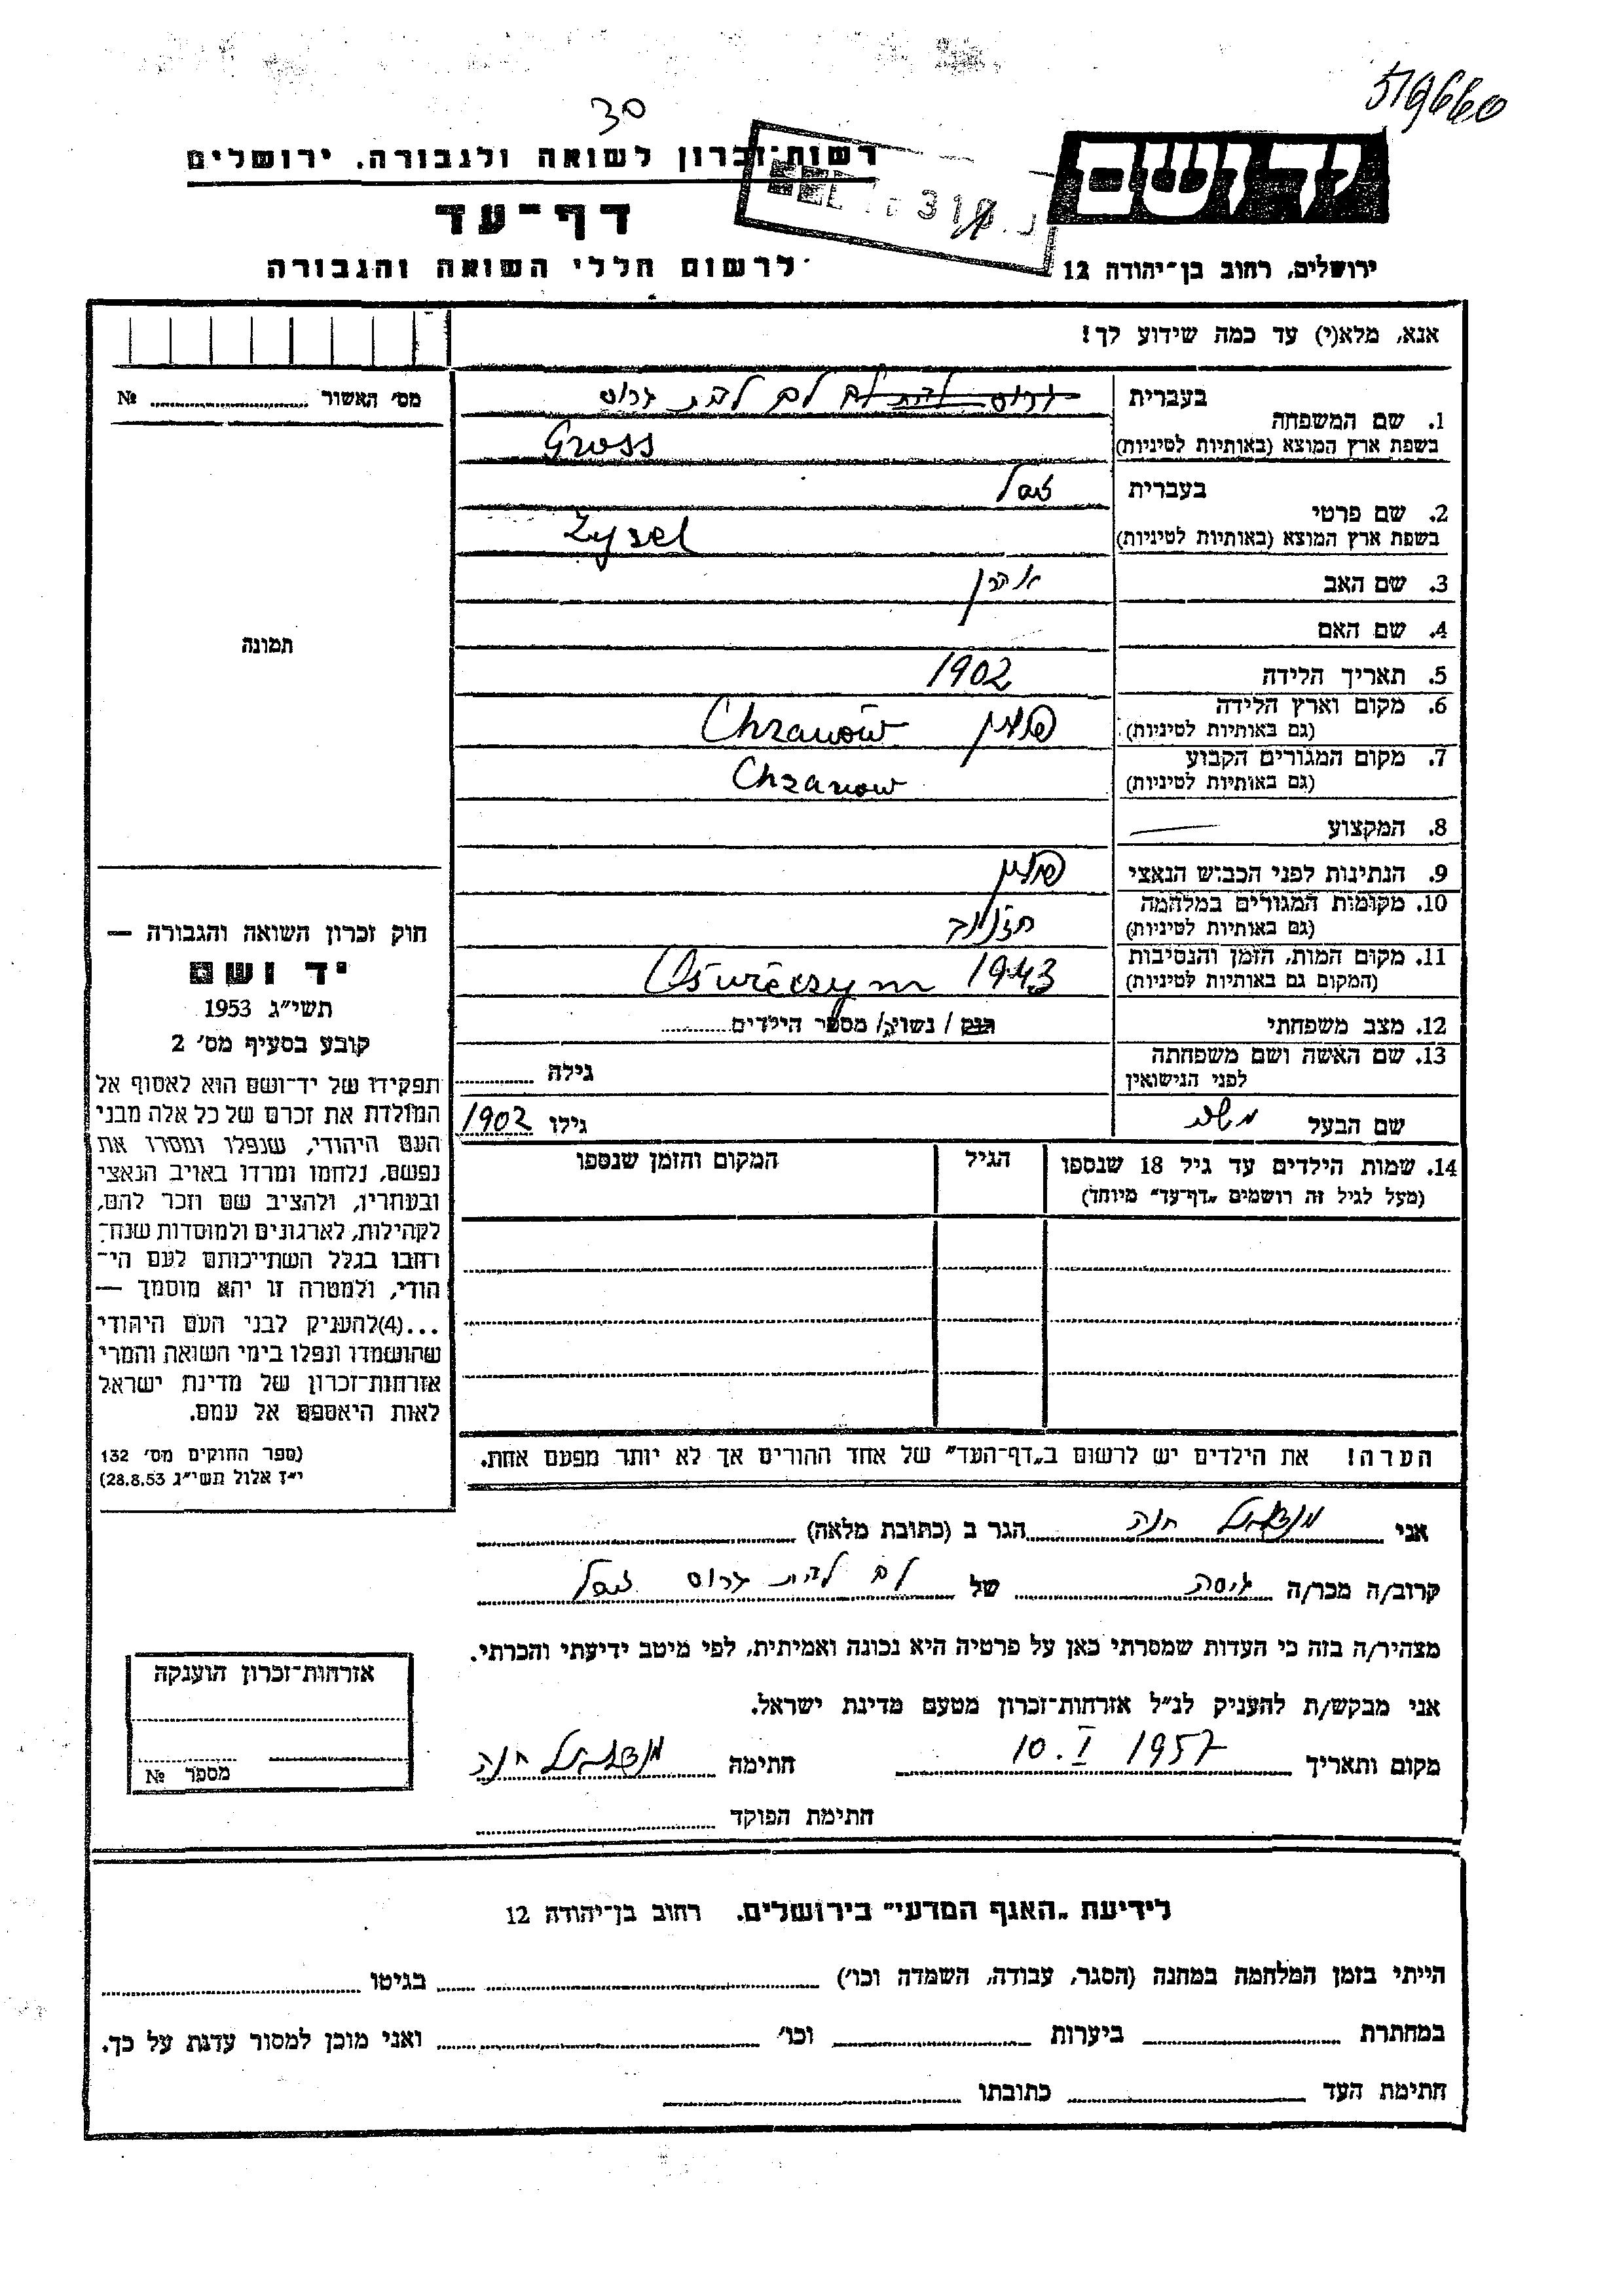 519660
30
יד ושם
רשות־זכרון לשואה ולגבורה. ירושלים
דף־עד
לרשום חללי השואה והגבורה
ירושלים, רחוב בן־יהודה 12
אנא, מלא(י) עד כמה שידוע לך!
מס׳ האשור № ........
1. שם המשפחה
בעברית לב לבית גרוס
בשפת ארץ המוצא (באותיות לטיניות) Gross
2. שם פרטי
בעברית זיסל
בשפת ארץ המוצא (באותיות לטיניות) Zysel
3. שם האב אהרן
4. שם האם
5. תאריך הלידה 1902
6. מקום וארץ הלידה
(גם באותיות לטיניות) פולין Chrzanów
7. מקום המגורים הקבוע
(גם באותיות לטיניות) Chrzanow
8. המקצוע —
9. הנתינות לפני הכבוש הנאצי פולין
10. מקומות המגורים במלחמה
(גם באותיות לטיניות)
11. מקום המות, הזמן והנסיבות
(המקום גם באותיות לטיניות) 1943
12. מצב משפחתי רווק / נשוי / מספר הילדים........
13. שם האשה ושם משפחתה
לפני הנישואין
גילה ........
שם הבעל משה גילו 1902
14. שמות הילדים עד גיל 18 שנספו
(מעל לגיל זה רושמים „דף־עד” מיוחד)
הגיל
המקום והזמן שנספו
הערה! את הילדים יש לרשום ב„דף־העד” של אחד ההורים אך לא יותר מפעם אחת.
תמונה
חוק זכרון השואה והגבורה —
יד ושם
תשי״ג 1953
קובע בסעיף מס׳ 2
תפקידו של יד־ושם הוא לאסוף אל
המולדת את זכרם של כל אלה מבני
העם היהודי, שנפלו ומסרו את
נפשם, נלחמו ומרדו באויב הנאצי
ובעוזריו, ולהציב שם וזכר להם,
לקהילות, לארגונים ולמוסדות שנח־
רחבו בגלל השתייכותם לעם הי־
הודי, ולמטרה זו יהא מוסמך —
...(4)להעניק לבני העם היהודי
שהושמדו ונפלו בימי השואה והמרי
אזרחות־זכרון של מדינת ישראל
לאות היאספם אל עמם.
(ספר החוקים מס׳ 132
י״ז אלול תשי״ג 28.8.53)
אני חנה הגר ב (כתובת מלאה)
קרוב/ה מכר/ה גיסה של לב לבית גרוס זיסל
מצהיר/ה בזה כי העדות שמסרתי כאן על פרטיה היא נכונה ואמיתית, לפי מיטב ידיעתי והכרתי.
אני מבקש/ת להעניק לנ״ל אזרחות־זכרון מטעם מדינת ישראל.
מקום ותאריך 10. I 1957 חתימה חנה
חתימת הפוקד
אזרחות־זכרון הוענקה
מספר №
לידיעת „האגף המדעי” בירושלים. רחוב בן־יהודה 12
הייתי בזמן המלחמה במחנה (הסגר, עבודה, השמדה וכו׳) בגיטו
במחתרת ביערות וכו׳ ואני מוכן למסור עדות על כך.
חתימת העד כתובתו